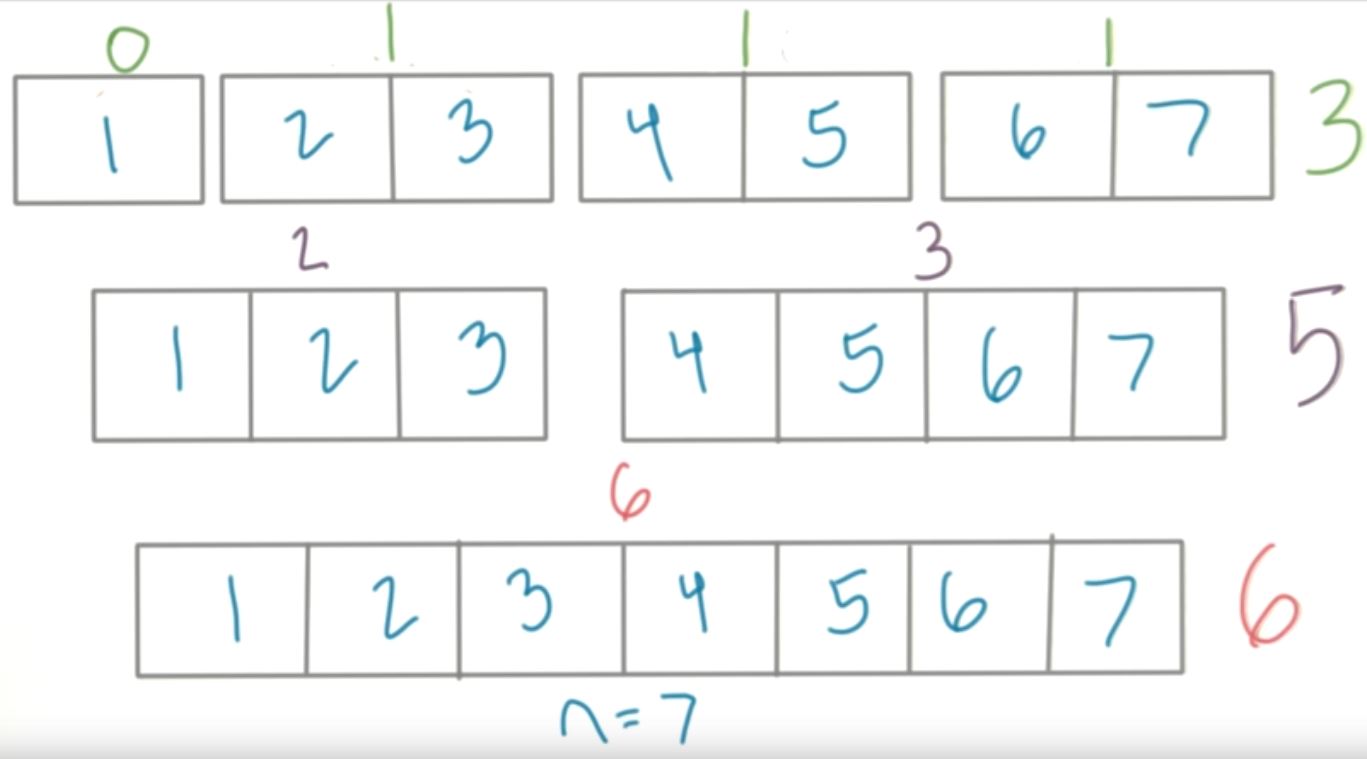 0 1 1 1
1 2 3 4 5 6 7 3
2 3
1 2 3 4 5 6 7 5
6
1 2 3 4 5 6 7 6
n=7